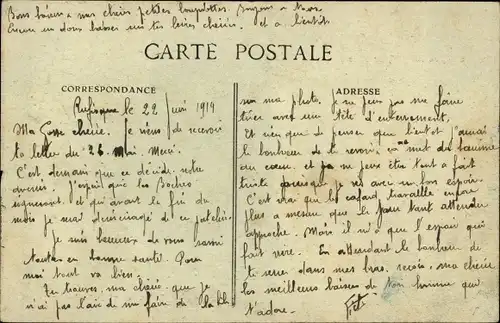 Bons baisers à nos chers petites Loupiottes. Soyons à Nous.
Encore un doux baiser sur tes lèvres chéries. et à bientôt.
CARTE POSTALE
CORRESPONDANCE
ADRESSE
le 22 juin 1919
Ma Gosse chérie. Je viens de recevoir
ta lettre du 26 Mai Merci.
C'est demain que ce décide notre
avenir. J'espère que les Boches
signeront et qu'avant la fin du
mois je serai débarrassé de ce patelin.
Je suis heureux de vous savoir
toutes en bonne santé. Pour
moi tout va bien.
Tu trouves, ma chérie, que je
n'ai pas l'air de m'en faire de la bile
sur ma photo. Je ne peux pas me faire
tirer avec une tête d'enterrement.
Et rien que de penser que bientôt j'aurai
le bonheur de te revoir, ça met du baume
au cœur. et je ne peux être tout à fait
triste puisque je vis avec un bon espoir.
C'est vrai que le cafard travaille encore
plus à mesure que le jour tant attendu
approche. Mais il n'y a que l'espoir qui
fait vivre. En attendant le bonheur de
te serrer dans mes bras, reçois, ma chérie
les meilleurs baisers de ton homme qui
t'adore.